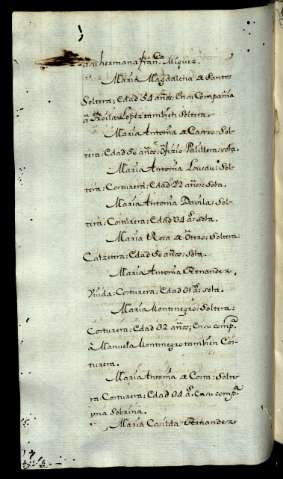 hermana fran.ca Miguez.
Maria Magdalena de Santos
Soltera; Edad 54 años; En su Compañia
Lopez tambien Soltera.
Maria Antonia de Castro; Sol-
tera; Edad 56 años;
Maria Antonia Sol-
tera; Costurera; Edad 22 años; sola.
Maria Antonia Davila; Sol-
tera; Costurera; Edad 34 a.s sola.
Maria Rosa de Otero; Soltera
Calzetera; Edad 50 años; Sola.
Maria Antonia Fernandez,
Viuda; Costurera; Edad a.s sola.
Maria Montenegro; Soltera;
Costurera; Edad 32 años; En su comp.a
à Manuela Montenegro tambien Cos-
turera.
Maria Antonia de Costa; Solte-
ra Costurera; Edad 34 a.s En su comp.a
una Sobrina.
Maria Fernandez